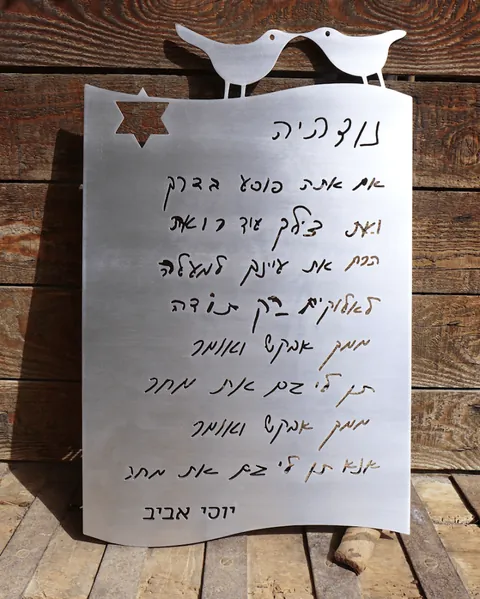 נוצתיה
אם אתה פוסע בדרק
ואת צילק עוד רואת
הרם את עיינק למעלה
לאלוקים רק תודה
ממק אבקש ואומר
תן לי גם את מחר
ממק אבקש ואומר
אנא תן לי גם את מחר
יוסי אביב